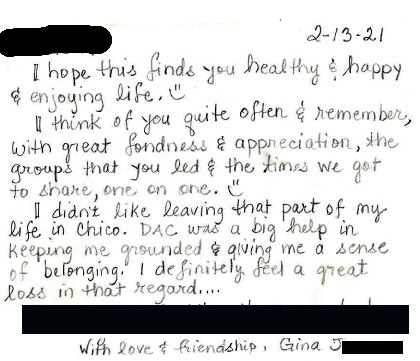 2-13-21
I hope this finds you healthy & happy
& enjoying life.
I think of you quite often & remember,
with great fondness & appreciation, the
groups that you led & the times we got
to share, one on one.
I didn't like leaving that part of my
life in Chico. DAC was a big help in
keeping me grounded & giving me a sense
of belonging. I definitely feel a great
loss in that regard....
With love & friendship, Gina J